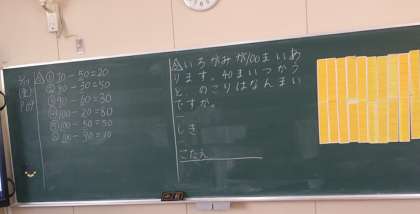 ① 70-50=20
② 80-30=50
③ 90-60=30
④ 100-20=80
⑤ 100-50=50
⑥ 100-90=10
いろがみが100まいあ
ります。40まいつかう
と、のこりはなんまい
ですか。
しき
こたえ